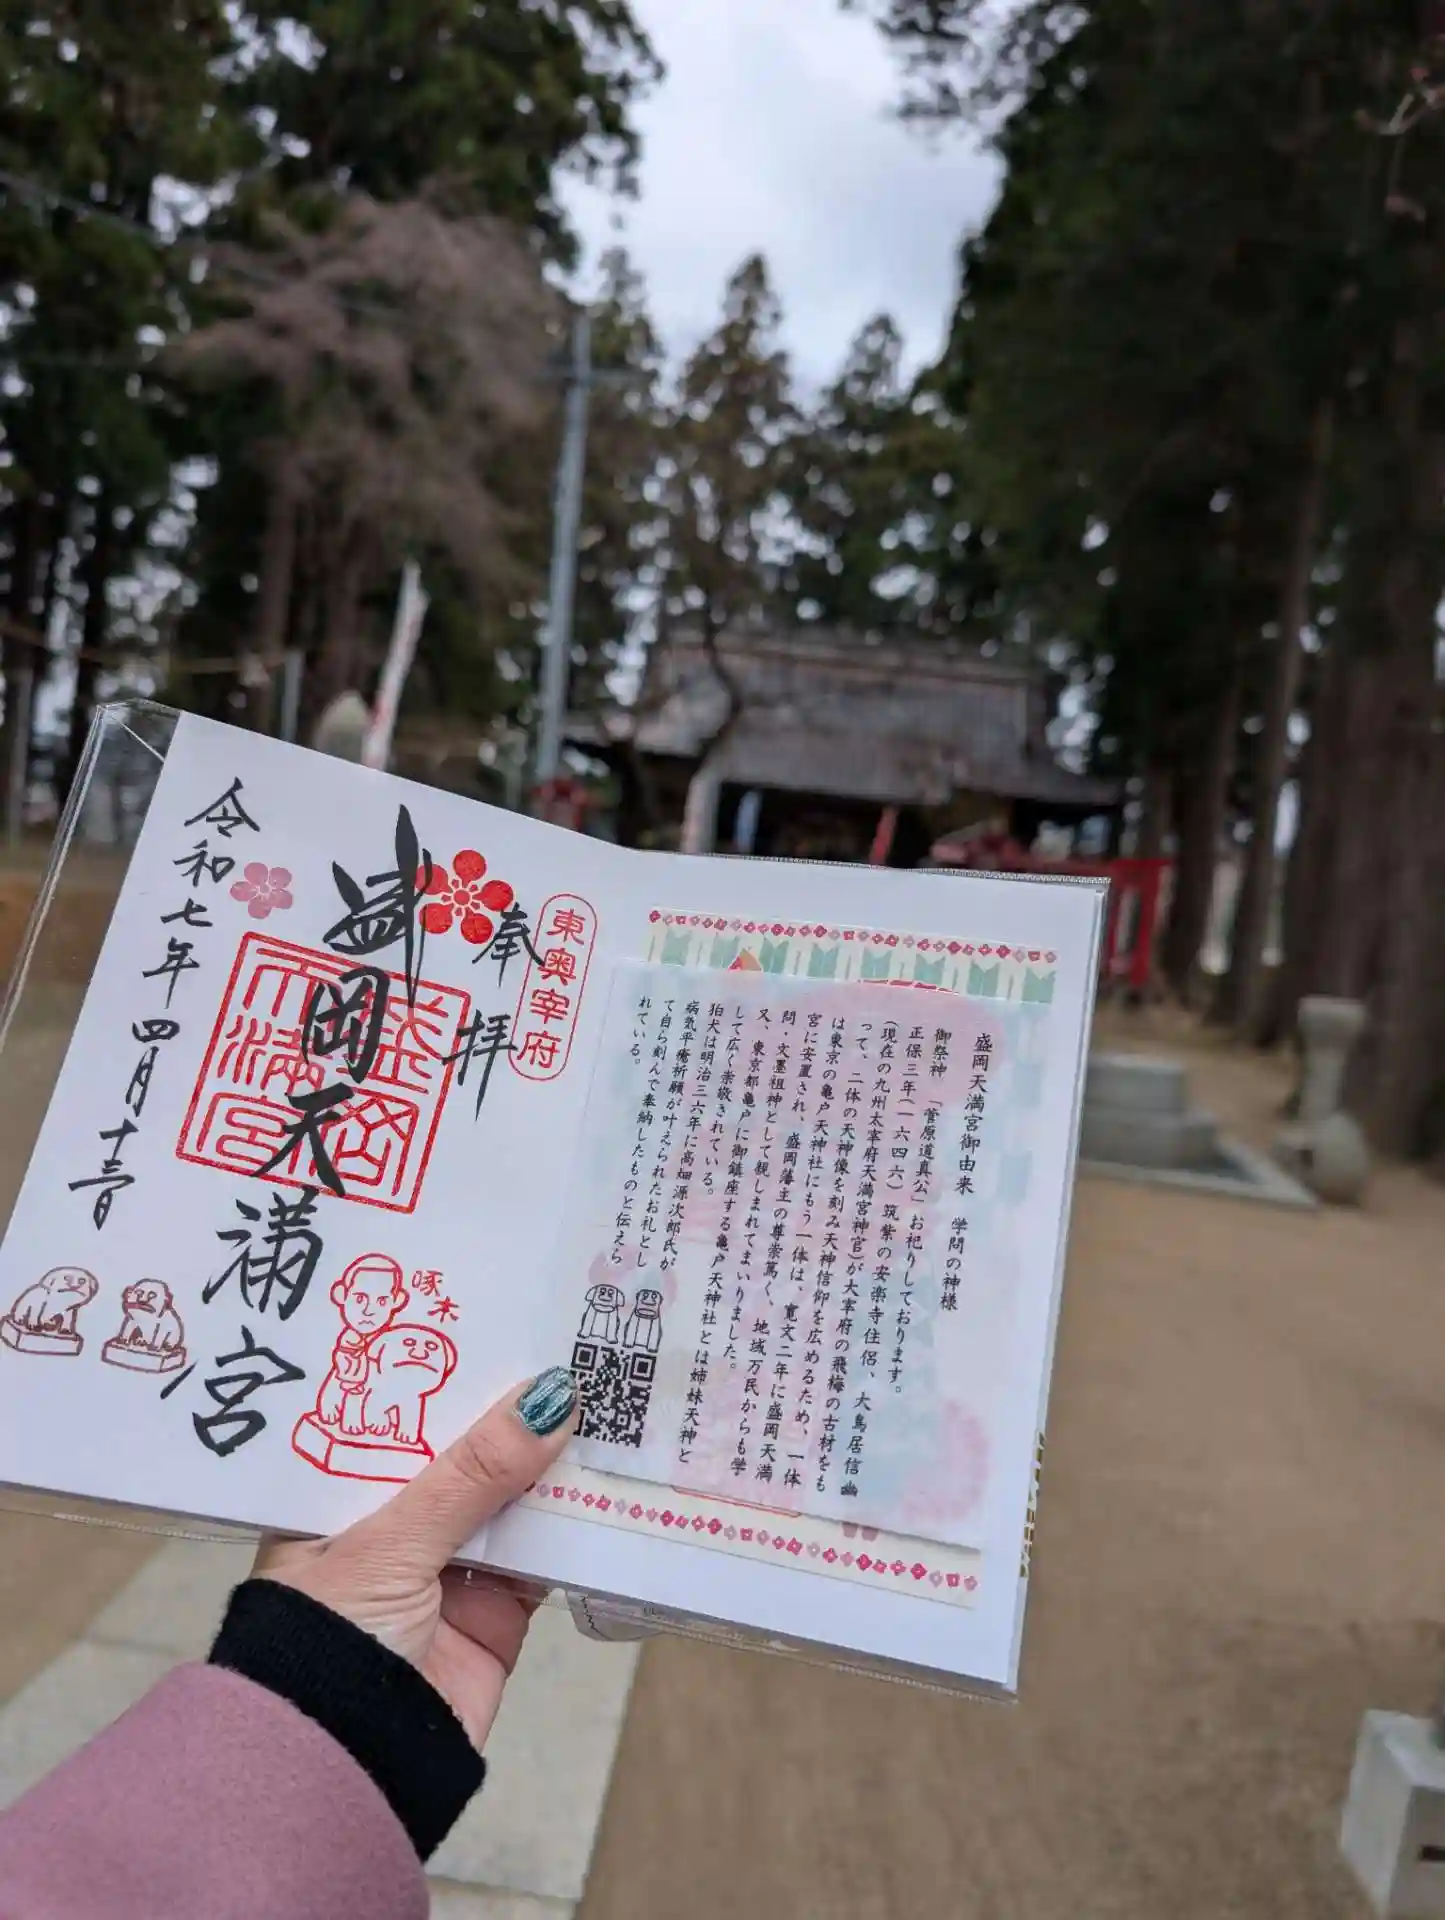 東奥宰府
奉拝
盛岡天満宮
盛岡
天満宮
令和七年四月十三日
啄木
盛岡天満宮御由来 学問の神様
御祭神 「菅原道真公」お祀りしております。
正保三年(一六四六)筑紫の安楽寺住侶、大鳥居信幽
(現在の九州太宰府天満宮神官)が大宰府の飛梅の古材をも
って、二体の天神像を刻み天神信仰を広めるため、一体
は東京の亀戸天神社にもう一体は、寛文二年に盛岡天満
宮に安置され、盛岡藩主の尊崇篤く、地域万民からも学
問・文墨祖神として親しまれてまいりました。
又、東京都亀戸に御鎮座する亀戸天神社とは姉妹天神と
して広く崇敬されている。
狛犬は明治三六年に高畑源次郎氏が
病気平癒祈願が叶えられたお礼とし
て自ら刻んで奉納したものと伝えら
れている。